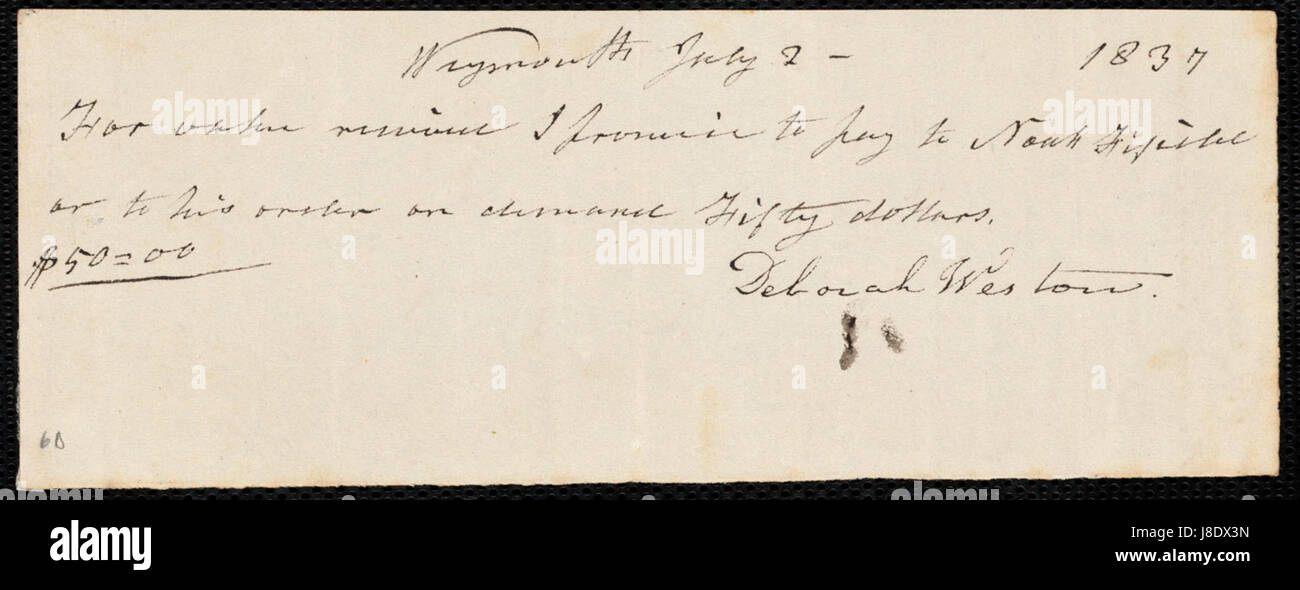 Weymouth July 2 — 1837
For value received I promise to pay to Noah Fifield
or to his order on demand Fifty dollars.
$50=00
Deborah Weston.
6D
alamy
Image ID: J8DX3N
www.alamy.com